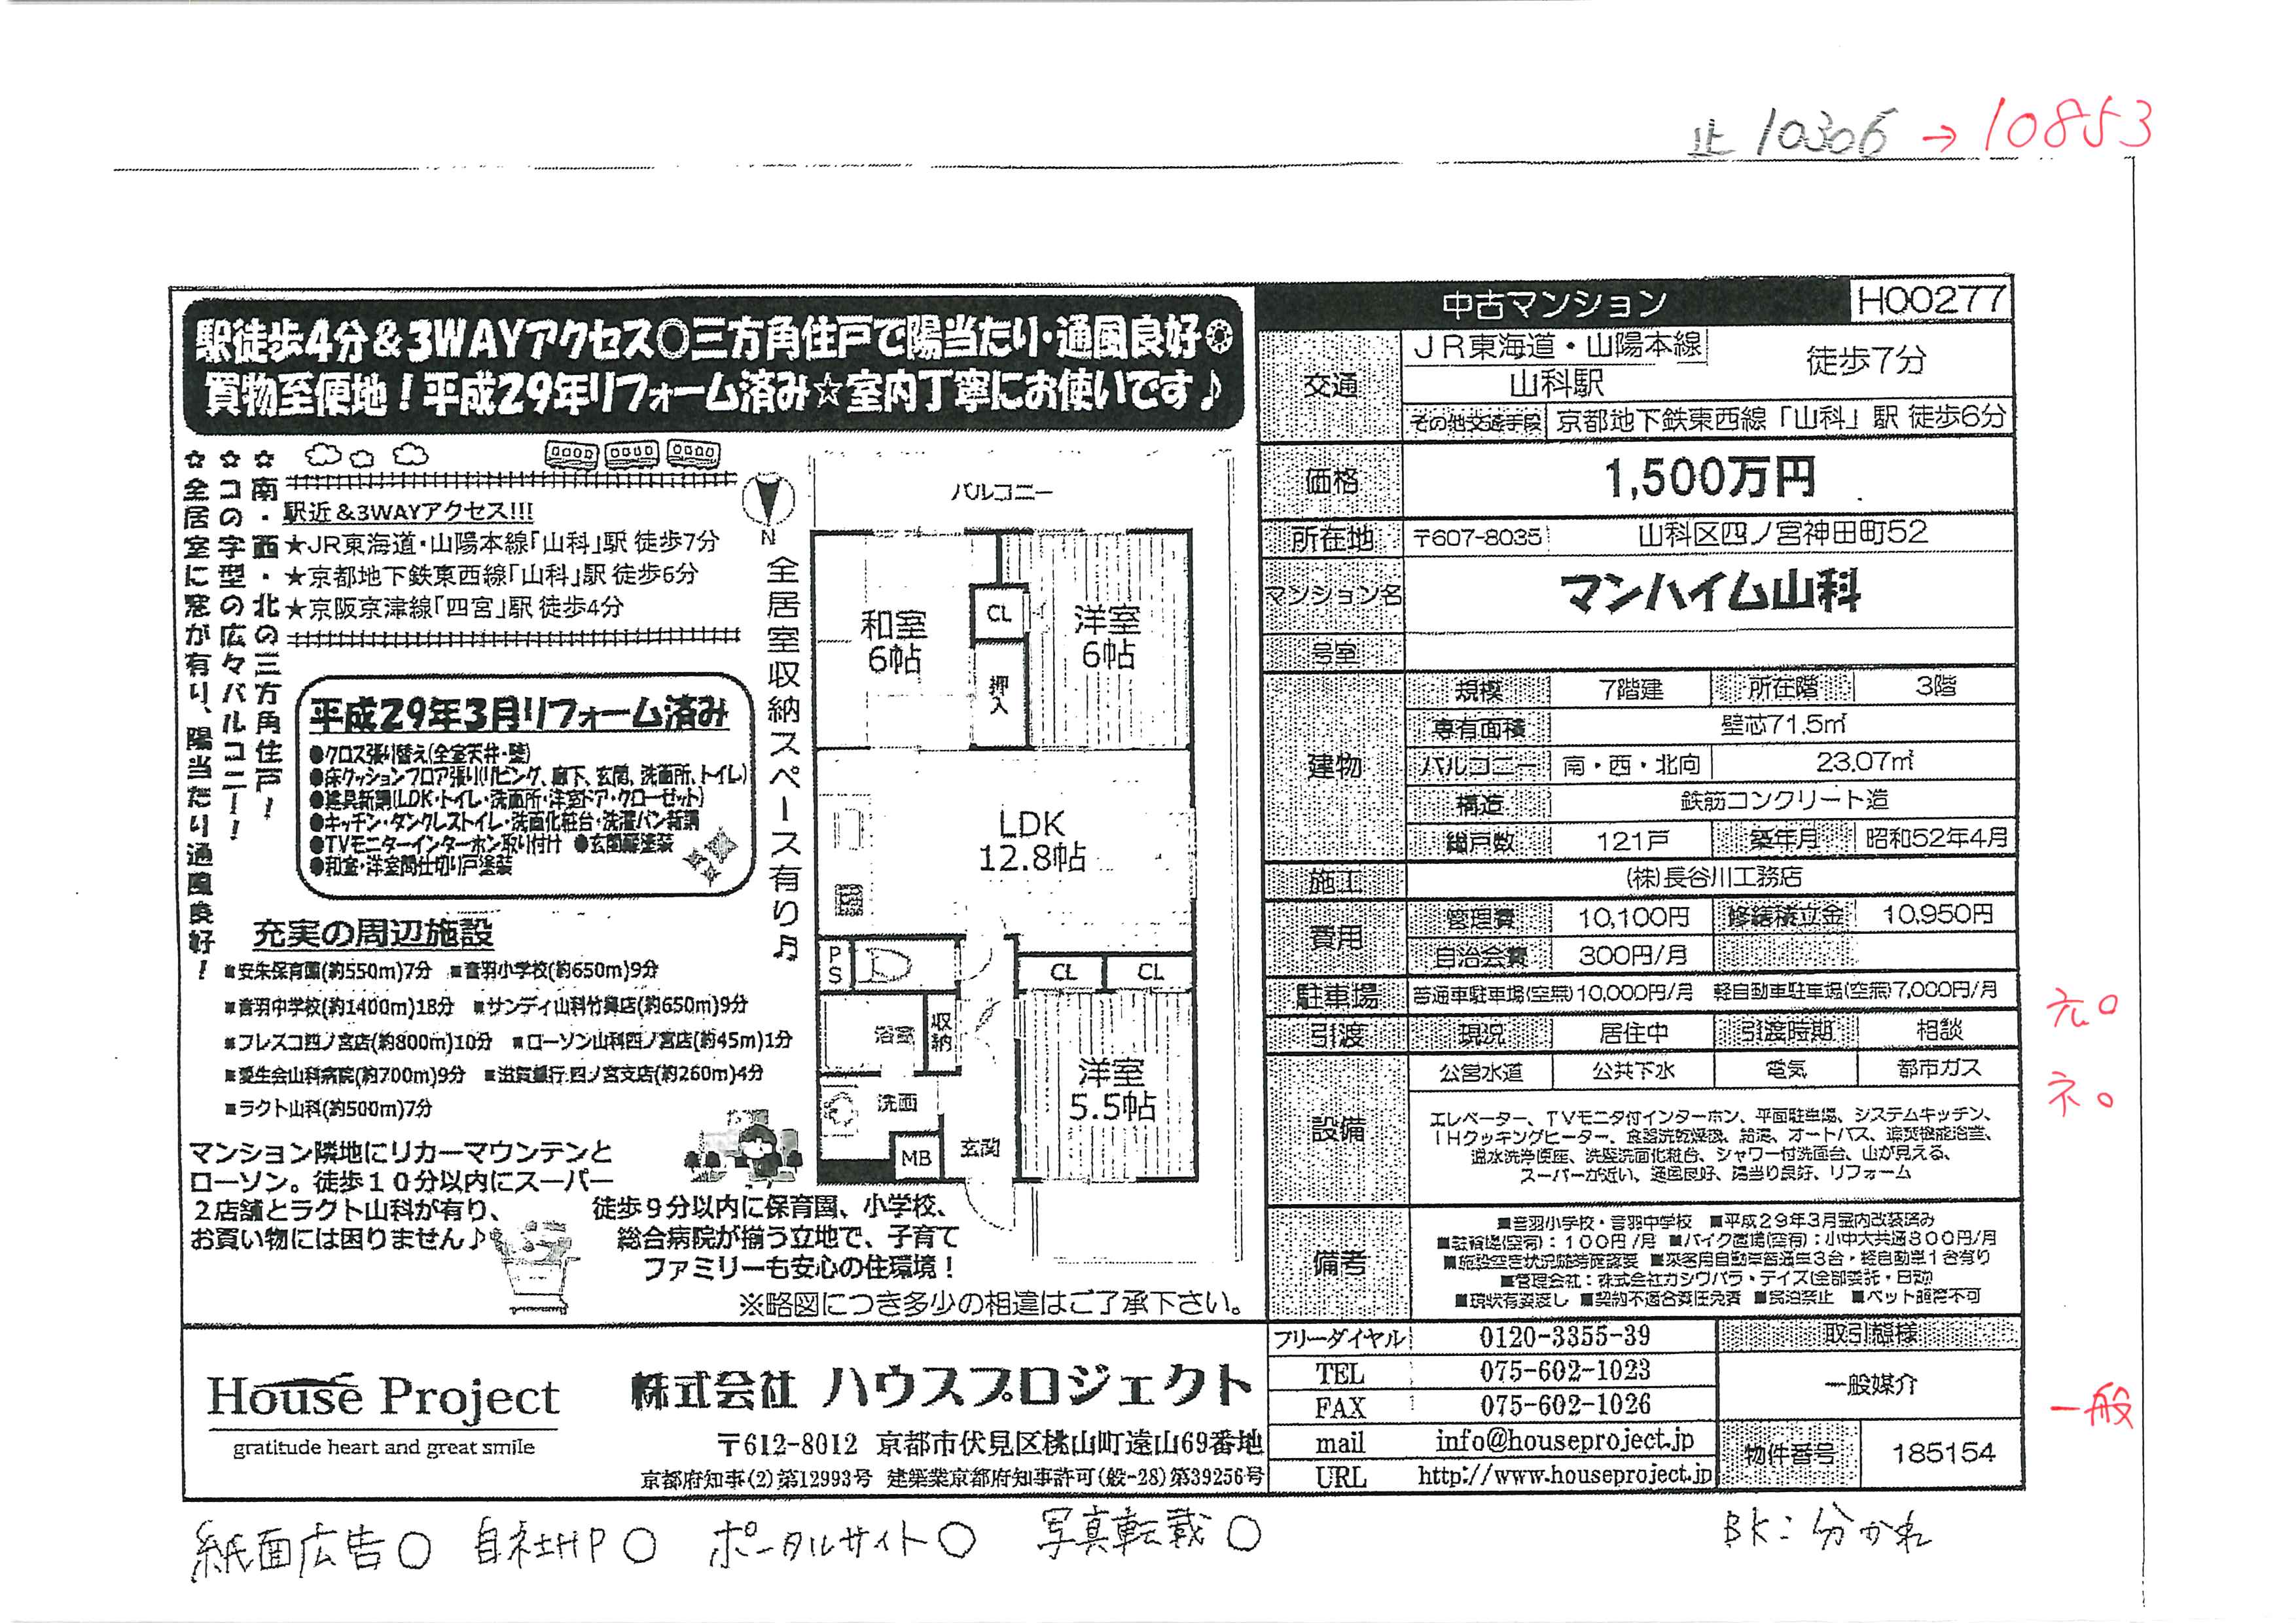 止 10306 → 10853
駅徒歩4分&3WAYアクセス◎三方角住戸で陽当たり・通風良好
買物至便地！平成29年リフォーム済み☆室内丁寧にお使いです♪
☆南・西・北の三方角住戸！
☆コの字型の広々バルコニー！
☆全居室に窓が有り、陽当たり通風良好！
駅近&3WAYアクセス!!!
★JR東海道・山陽本線「山科」駅 徒歩7分
★京都地下鉄東西線「山科」駅 徒歩6分
★京阪京津線「四宮」駅 徒歩4分
平成29年3月リフォーム済み
●クロス張り替え(全室天井・壁)
●床クッションフロア張り(リビング、廊下、玄関、洗面所、トイレ)
●建具新調(LDK・トイレ・洗面所・洋室ドア・クローゼット)
●キッチン・タンクレストイレ・洗面化粧台・洗濯パン新調
●TVモニターインターホン取り付け ●玄関扉塗装
●和室・洋室間仕切り戸塗装
充実の周辺施設
■安朱保育園(約550m)7分 ■音羽小学校(約650m)9分
■音羽中学校(約1400m)18分 ■サンディ山科竹鼻店(約650m)9分
■フレスコ四ノ宮店(約800m)10分 ■ローソン山科四ノ宮店(約45m)1分
■愛生会山科病院(約700m)9分 ■滋賀銀行四ノ宮支店(約260m)4分
■ラクト山科(約500m)7分
マンション隣地にリカーマウンテンと
ローソン。徒歩１０分以内にスーパー
２店舗とラクト山科が有り、
お買い物には困りません♪
徒歩９分以内に保育園、小学校、
総合病院が揃う立地で、子育て
ファミリーも安心の住環境！
※略図につき多少の相違はご了承下さい。
N
全居室収納スペース有り♬
バルコニー
和室
6帖
CL
押入
洋室
6帖
LDK
12.8帖
PS
CL
CL
浴室
収納
洗面
MB
玄関
洋室
5.5帖
中古マンション H00277
交通 ＪＲ東海道・山陽本線
山科駅 徒歩7分
その他交通手段 京都地下鉄東西線「山科」駅 徒歩6分
価格 1,500万円
所在地 〒607-8035 山科区四ノ宮神田町52
マンション名 マンハイム山科
号室
建物 規模 7階建 所在階 3階
専有面積 壁芯71.5㎡
バルコニー 南・西・北向 23.07㎡
構造 鉄筋コンクリート造
総戸数 121戸 築年月 昭和52年4月
施工 (株)長谷川工務店
費用 管理費 10,100円 修繕積立金 10,950円
自治会費 300円/月
駐車場 普通車駐車場(空無)10,000円/月 軽自動車駐車場(空無)7,000円/月
引渡 現況 居住中 引渡時期 相談
設備 公営水道 公共下水 電気 都市ガス
エレベーター、ＴＶモニタ付インターホン、平面駐車場、システムキッチン、
ＩＨクッキングヒーター、食器洗乾燥機、給湯、オートバス、追焚機能浴室、
温水洗浄便座、洗髪洗面化粧台、シャワー付洗面台、山が見える、
スーパーが近い、通風良好、陽当り良好、リフォーム
備考 ■音羽小学校・音羽中学校 ■平成２９年３月室内改装済み
■駐輪場(空有)：１００円/月 ■バイク置場(空有)：小中大共通３００円/月
■施設空き状況随時確認要 ■来客用自動車普通車３台・軽自動車１台有り
■管理会社：株式会社カシワバラ・デイズ(全部委託・日勤)
■現状有姿渡し ■契約不適合責任免責 ■民泊禁止 ■ペット飼育不可
元○
ネ○
一般
House Project
gratitude heart and great smile
株式会社 ハウスプロジェクト
〒612-8012 京都市伏見区桃山町遠山69番地
京都府知事(2)第12993号 建築業京都府知事許可(般-28)第39256号
フリーダイヤル 0120-3355-39
TEL 075-602-1023
FAX 075-602-1026
mail info@houseproject.jp
URL http://www.houseproject.jp
取引態様
一般媒介
物件番号 185154
紙面広告○ 自社HP○ ポータルサイト○ 写真転載○ BK：分かれ